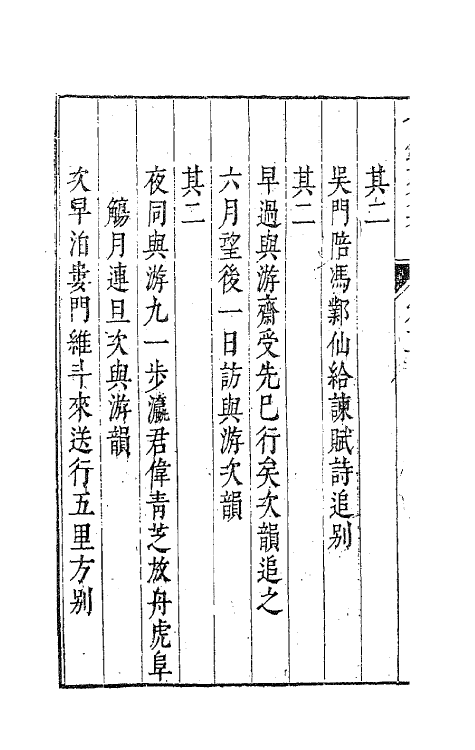 其二
吴門陪馮鄴仙給諫賦詩追别
其二
早過與游齋受先巳行矣次韻追之
六月望後一日訪與游次韻
其二
夜同與游九一步瀛君偉青芝放舟虎阜
觴月連旦次與游韻
次早泊婁門維斗來送行五里方别